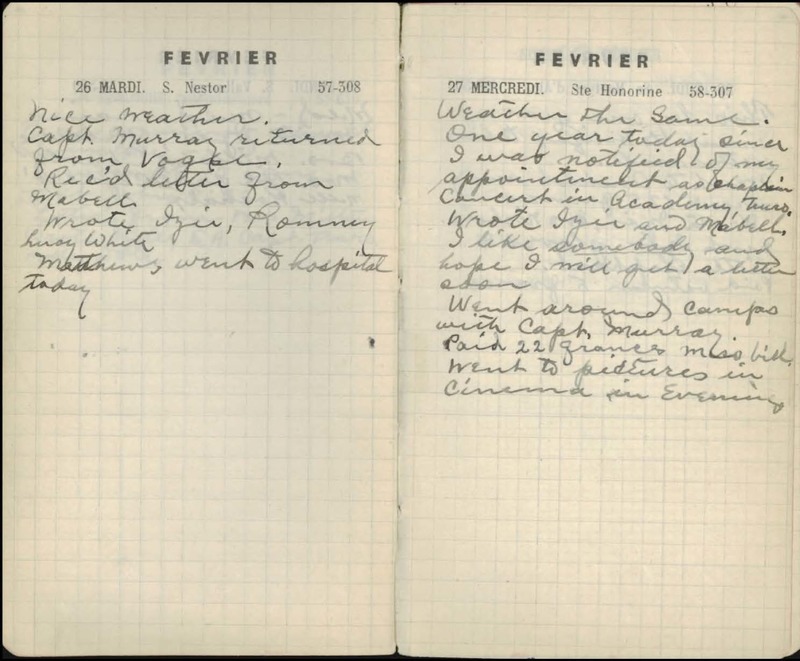 FEVRIER
26 MARDI. S. Nestor 57-308
Nice weather.
Capt. Murray returned
from
Rec'd letter from
Mabell
Wrote Izie, Romney
Lucy White
Matthews went to hospital
today
FEVRIER
27 MERCREDI. Ste Honorine 58-307
Weather the same.
One year today since
I was notified of my
appointment as Chaplain
Concert in Academy
Wrote Izie and Mabell.
I like somebody and
hope I will get a letter
soon
Went around camps
with Capt. Murray.
Paid 22 francs mess bill.
Went to pictures in
Cinema in Evening